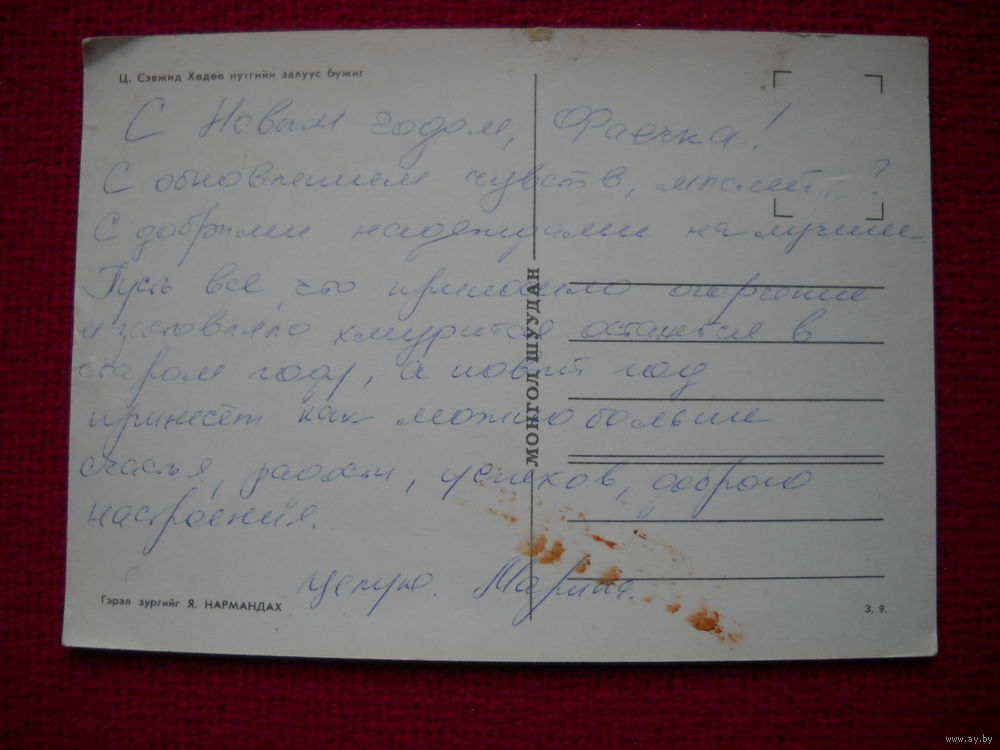 Ц. Сэвжид Хөдөө нутгийн залуус бүжиг
С Новым годом, Фаечка!
С обновлением чувств, мыслей...?
С добрыми надеждами на лучшее.
Пусть всё, что приносило огорчение
и заставляло хмурится останется в
старом году, а новый год
принесёт как можно больше
счастья, радости, успехов, доброго
настроения.
Целую. Марина.
МОНГОЛ ШУУДАН
Гэрэл зургийг Я. НАРМАНДАХ
3. 9.
www.ay.by